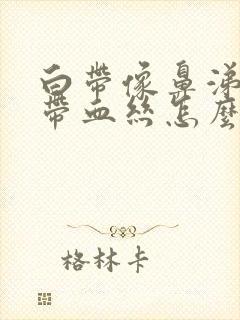 白带像鼻涕
带血丝怎麽
格林卡